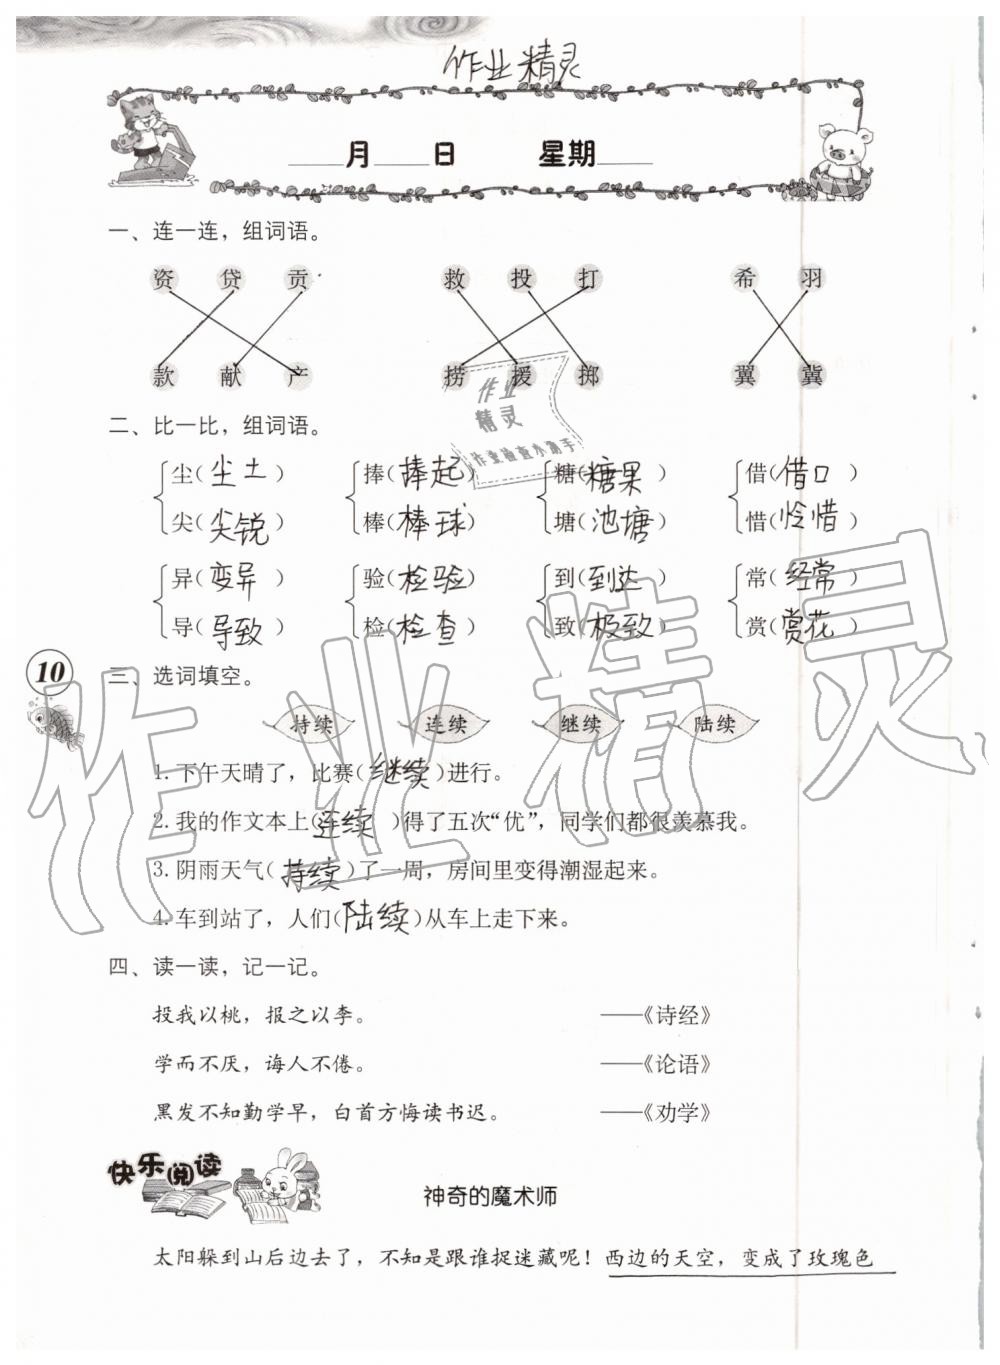 作业精灵
月 日 星期
一、连一连，组词语。
资 贷 贡 救 投 打 希 羽
款 献 产 捞 援 掷 翼 冀
作业
精灵
作业检查小助手
二、比一比，组词语。
尘(尘土) 捧(捧起) 糖(糖果) 借(借口)
尖(尖锐) 棒(棒球) 塘(池塘) 惜(怜惜)
异(变异) 验(检验) 到(到达) 常(经常)
导(导致) 检(检查) 致(极致) 赏(赏花)
10
三、选词填空。
持续 连续 继续 陆续
1.下午天晴了，比赛(继续)进行。
2.我的作文本上(连续)得了五次“优”，同学们都很羡慕我。
3.阴雨天气(持续)了一周，房间里变得潮湿起来。
4.车到站了，人们(陆续)从车上走下来。
四、读一读，记一记。
投我以桃，报之以李。 ——《诗经》
学而不厌，诲人不倦。 ——《论语》
黑发不知勤学早，白首方悔读书迟。 ——《劝学》
快乐阅读
神奇的魔术师
太阳躲到山后边去了，不知是跟谁捉迷藏呢！西边的天空，变成了玫瑰色
作业精灵